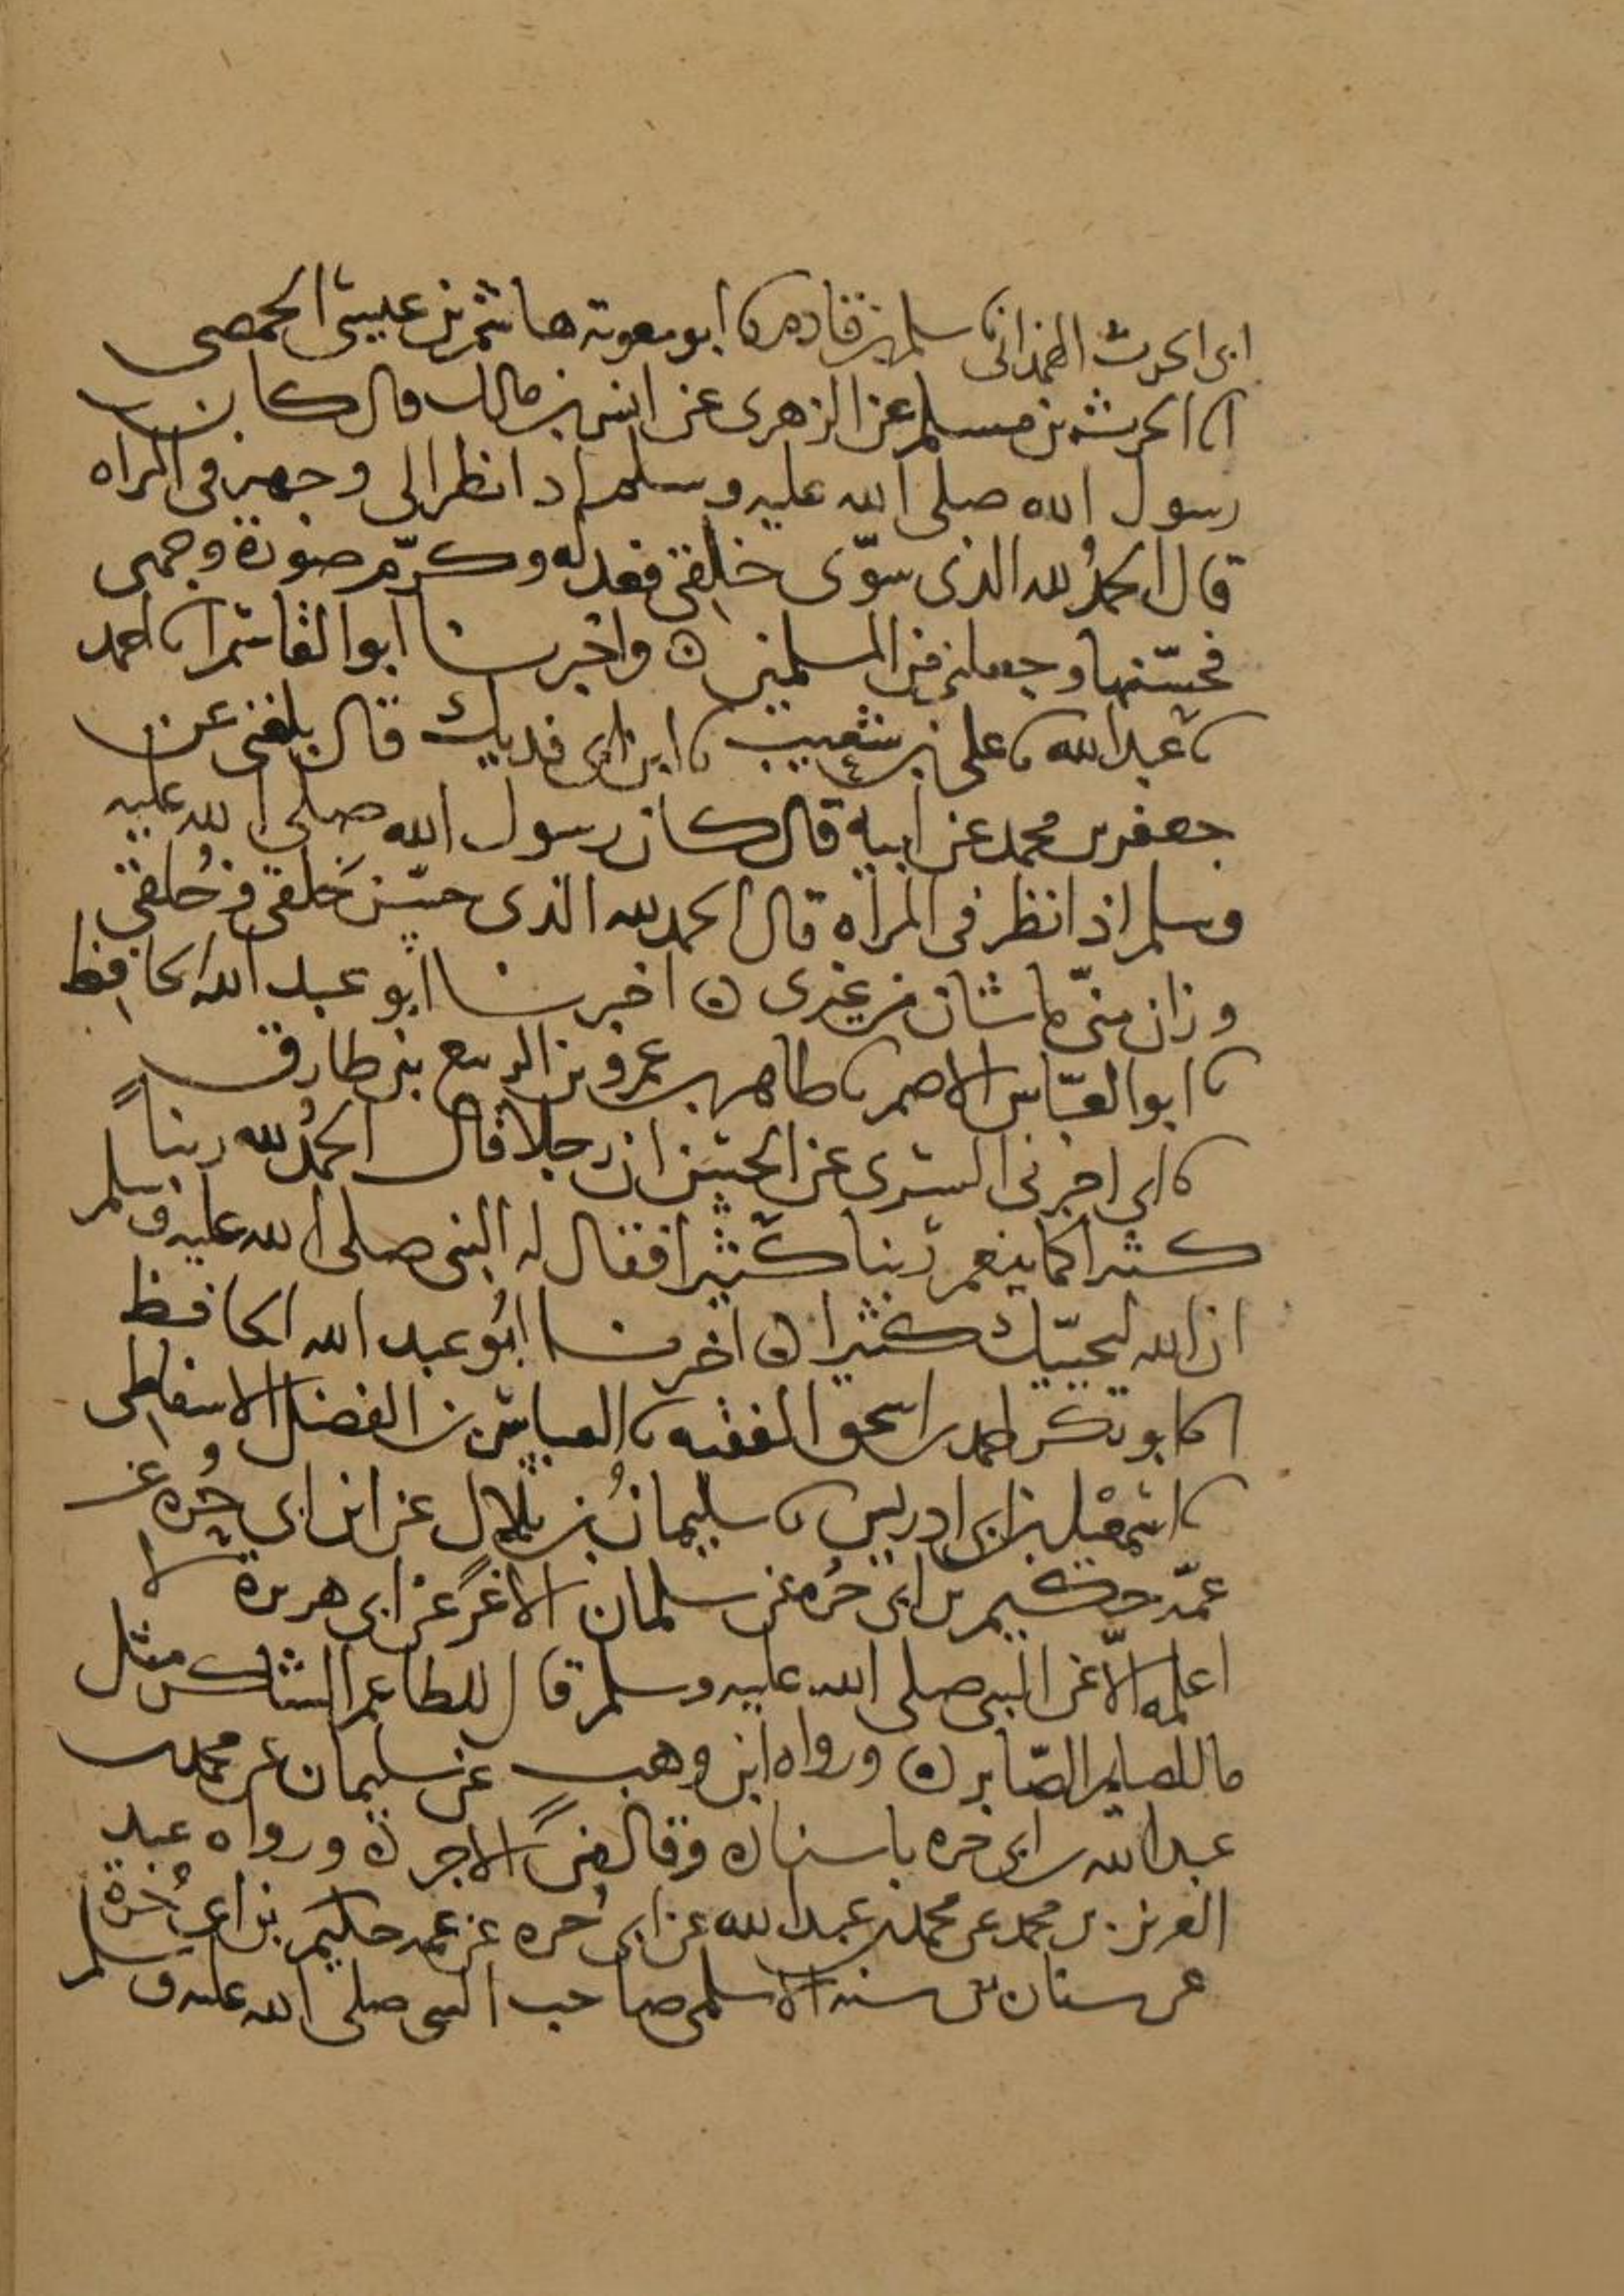 ابن الحرث الهمداني ثنا سلم بن قادم ثنا ابو معوية هاشم بن عيسى الحمصي
انا الحرث بن مسلم عن الزهري عن انس بن مالك قال كان
رسول الله صلى الله عليه وسلم اذا نظر الى وجهه في المراه
قال الحمدُ لله الذي سوّى خلقي فعدله وكرّم صورة وجهي
فحسّنها وجعلني من المسلمين ۞ واخبرنا ابو القاسم انا احمد
ثنا عبد الله ثنا علي بن شعيب ثنا ابن ابي فديك قال بلغني عن
جعفر بن محمد عن ابيه قال كان رسول الله صلى الله عليه
وسلم اذا نظر في المراه قال الحمد لله الذي حسّن خَلقي وخُلقي
وزان منّي ما شان من غيري ۞ اخبرنا ابو عبد الله الحافظ
ثنا ابو العبّاس الاصم ثنا طاهر بن عمرو بن الربيع بن طارق
ثنا ابي اخبرني السري عن الحسن ان رجلا قال الحمدُ لله ربنا
كثيرا كما ينعم ربنا كثيرا فقال له النبي صلى الله عليه وسلم
ان الله ليحبّك كثيرا ۞ اخبرنا ابُو عبد الله الحافظ
انا ابو بكر احمد بن اسحق الفقيه ثنا العباس بن الفضل الاسفاطي
ثنا اسمعيل بن ابي ادريس ثنا سليمانُ بن بلال عن ابن ابي حُره عن
عمّه حكيم بن ابي حُره عن سلمان الاغر عن ابي هريرة لا
اعلمه الّا عن النبي صلى الله عليه وسلم قال للطاعم الشاكر مثل
ما للصايم الصّابر ۞ ورواه ابن وهب عن سليمان عن محمد بن
عبد الله بن ابي حره باسناده وقال من الاجر ۞ ورواه عبد
العزيز بن محمد عن محمد بن عبد الله عن ابي حُره عن عمه حكيم بن ابي حُره
عن سنان بن سنه الاسلمي صاحب النبي صلى الله عليه وسلم